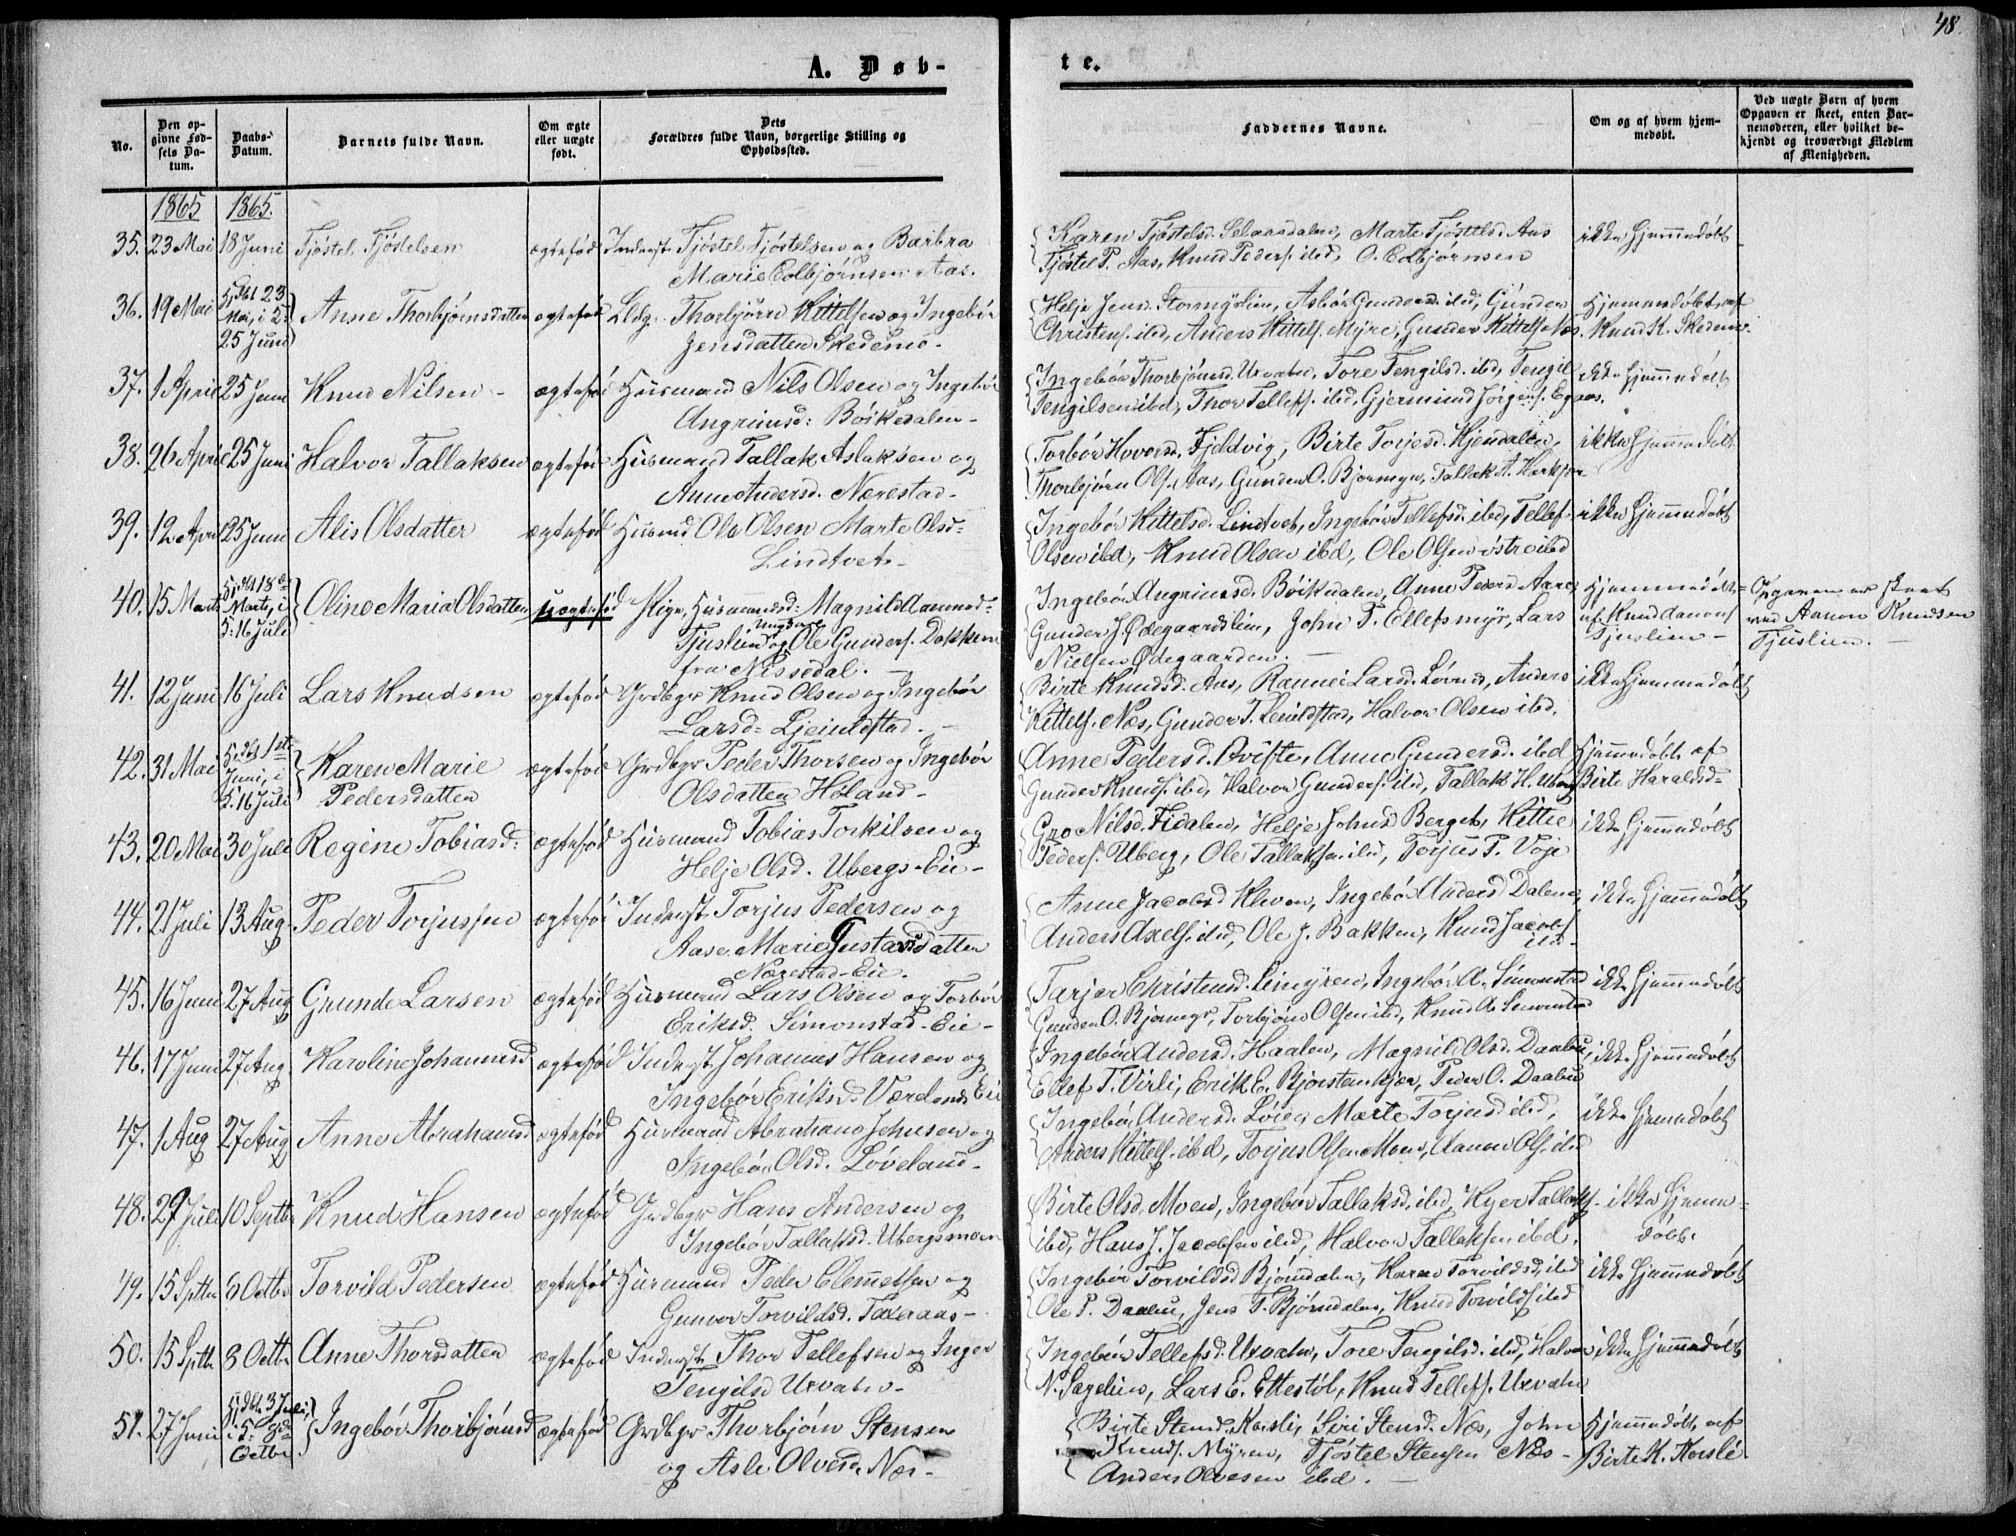 48.
A. Døb-
te.
No.
Den op-
givne Fød-
sels Da-
tum.
Daabs-
Datum.
Barnets fulde Navn.
Om ægte
eller uægte
født.
Dets
Forældres fulde Navn, borgerlige Stilling og
Opholdssted.
Faddernes Navne.
Om og af hvem hjem-
medøbt.
Ved uægte Børn af hvem
Opgaven er skeet, enten Bar-
nemoderen, eller hvilket be-
kjendt og troværdigt Medlem
af Menigheden.
1865 1865.
35. 23 Mai 18 Juni Tjøstel Tjøstelsen ægtefød Inderst Tjøstel Tjøstelsen og Barbra
Marie Eelbjørnsen Aas.
Karen Tjøstelsd. Selaasdalen, Marte Tjøstelsd. Aas
Tjøstel P. Aas, Knud Peders. ibd, O. Edbjørnsen
ikke hjemmedøbt
36. 19 Mai Hjdbt 23
Mai, i K.
25 Juni
Anne Thorbjørnsdatter ægtefød Thorbjørn Kittelsen og Ingebør
Jensdatter Skedemo.
Helje Jensd. Stormyrlien, Asbør Gundersd. ibd, Gunder
Christens. ibd, Anders Kittels. Myre, Gunder Kittels. Næs.
Hjemmedøbt af
Knud K. Skedemo.
37. 1 April 25 Juni Knud Nilsen ægtefød Husmand Nils Olsen og Ingebør
Angrimsd: Bøikedalen
Ingebør Thorbjørnsd. Urvatn, Tore Tengilsd. ibd, Tengil
Tengilsen ibd, Thor Tellefs. ibd, Gjermund Jørgens. Egaas.
ikke hjemmedøbt
38. 26 April 25 Juni Halvor Tallaksen ægtefød Husmand Tallak Aslaksen og
Anne Andersd. Nærestad
Torbør Hovorsd. Fjeldvig, Birte Torjesd. Hjendalen,
Thorbjørn Ols. Aas, Gunder O. Bjormyr, Tallak A.
ikke hjemmedøbt
39. 12 April 25 Juni Alis Olsdatter ægtefød Husmd Ole Olsen Marte Olsd=
Lindtvet
Ingebør Kittelsd. Lindtvet, Ingebør Tellefsd. ibd, Tellef
Olsen ibd, Knud Olsen ibd, Ole Olsen østre ibd
ikke hjemmedøbt
40. 15 Marts Hjdbt 18de
Marts, i
K. 16 Juli
Oline Maria Olsdatter uægtefød Pige, Husmandsd: Magnild Aanonsd=
Tjuslien og Ungkarl Ole Gunders. Dokken
fra Nissedal.
Ingebør Angrimsd. Bøikedalen, Anne Pedersd.
Gunder J. Ødegaardslien, John T. Ellefsmyr, Lars
Nielsen Ødegaarden.
Hjemmedøbt
af Knud Aanons
Tjuslien
Opgaven er skeet
ved Aanon Knudsen
Tjuslien.
41. 12 Juni 16 Juli Lars Knudsen ægtefød Grdbgr Knud Olsen og Ingebør
Larsd=
Birte Knudsd. Aas, Larsd. Løvnes, Anders
Kittels. Næs, Gunder T. Halvor Olsen ibd.
ikke hjemmedøbt
42. 31 Mai Hjdbt 1ste
Juni, i
K. 16 Juli
Karen Marie
Pedersdatter
ægtefød Grdbgr Peder Thorsen og Ingebør
Olsdatter Høland
Anne Pedersd. Anne Gundersd. ibd
Gunder Knuds. ibd, Halvor Gunders. ibd, Tallak H. Uberg
Hjemmedøbt af
Birte Haraldsd=
43. 20 Mai 30 Juli Regine Tobiasd: ægtefød Husmand Tobias Torkilsen og
Helje Olsd. Ubergs-Eie
Gro Nilsd. Fidalen, Helje Johnsd Berget, Kittel
Peders. Uberg, Ole Tallaksen ibd, Torjus P. Voje
ikke hjemmedøbt
44. 21 Juli 13 Aug Peder Torjussen ægtefød Inderst Torjus Pedersen og
Aase Marie Gustavsdatter
Nærestad-Eie.
Anne Jacobsd Kleven, Ingebør Andersd Dalen,
Anders Axels. ibd, Ole J. Bakken, Knud Jacobs
ibd
ikke hjemmedøbt
45. 16 Juni 27 Aug Grunde Larsen ægtefød Husmand Lars Olsen og Torbør
Eriksd. Simonstad-Eie
Tarjer Christensd. Leimyren, Ingebør A. Simonstad
Gunder O. Bjormyr, Torbjørn Olsen ibd, Knud A. Simonstad
ikke hjemmedøbt
46. 17 Juni 27 Aug. Karoline Johannesd ægtefød Inderst Johannes Hansen og
Ingebør Eriksd. Værlands Eie
Ingebør Andersd. Haalen, Magnild Olsd. Daabu,
Ellef T. Virli, Erik E. Peder O. Daabu
ikke hjemmedøbt
47. 1 Aug 27 Aug Anne Abrahamsd ægtefød Husmand Abraham Johnsen og
Ingebør Olsd. Løveland
Ingebør Andersd. Løien Marte Torjusd ibd,
Anders Kittels. ibd, Torjus Olsen Moen, Aanon Ols. ibd
ikke hjemmedøbt
48. 29 Juli 10 Septbr Knud Hansen ægtefød Grdbgr Hans Andersen og
Ingebør Tallaksd. Ubergsmoen
Birte Olsd. Moen, Ingebør Tallaksd. ibd, Kjer Tallaks.
ibd, Hans J. Jacobsen ibd, Halvor Tallaksen ibd.
ikke hjemme=
døbt.
49. 15 Septbr 8 Octbr Torvild Pedersen ægtefød Husmand Peder Clemetsen og
Gunvor Torvildsd.
Ingebør Torvildsd Bjørndalen, Karen Torvildsd. ibd
Ole P. Daabu, Jens T. Bjørndalen, Knud Torvilds ibd
ikke hjemmedøbt
50. 15 Septbr 8 Octbr Anne Thorsdatter ægtefød Inderst Thor Tellefsen og Inger
Tengilsd Urvatn
Ingebør Tellefsd. Urvatn, Tore Tengilsd. ibd, Halvor
N. Sagelien, Lars E. Ettestøl, Knud Tellefs. Urvatn
ikke hjemmedøbt
51. 27 Juni Hjdbt 3 Juli,
i K. 8de
Octbr
Ingebør Thorbjørnsd ægtefød Grdbgr Thorbjørn Stensen
og Asle Olvesd. Næs
Birte Stensd. Korsli, Siri Stensd. Næs, John
Knuds. Myren, Tjøstel Stensen Næs
Anders Olvesen ibd.
Hjemmedøbt af
Birte K. Korsli